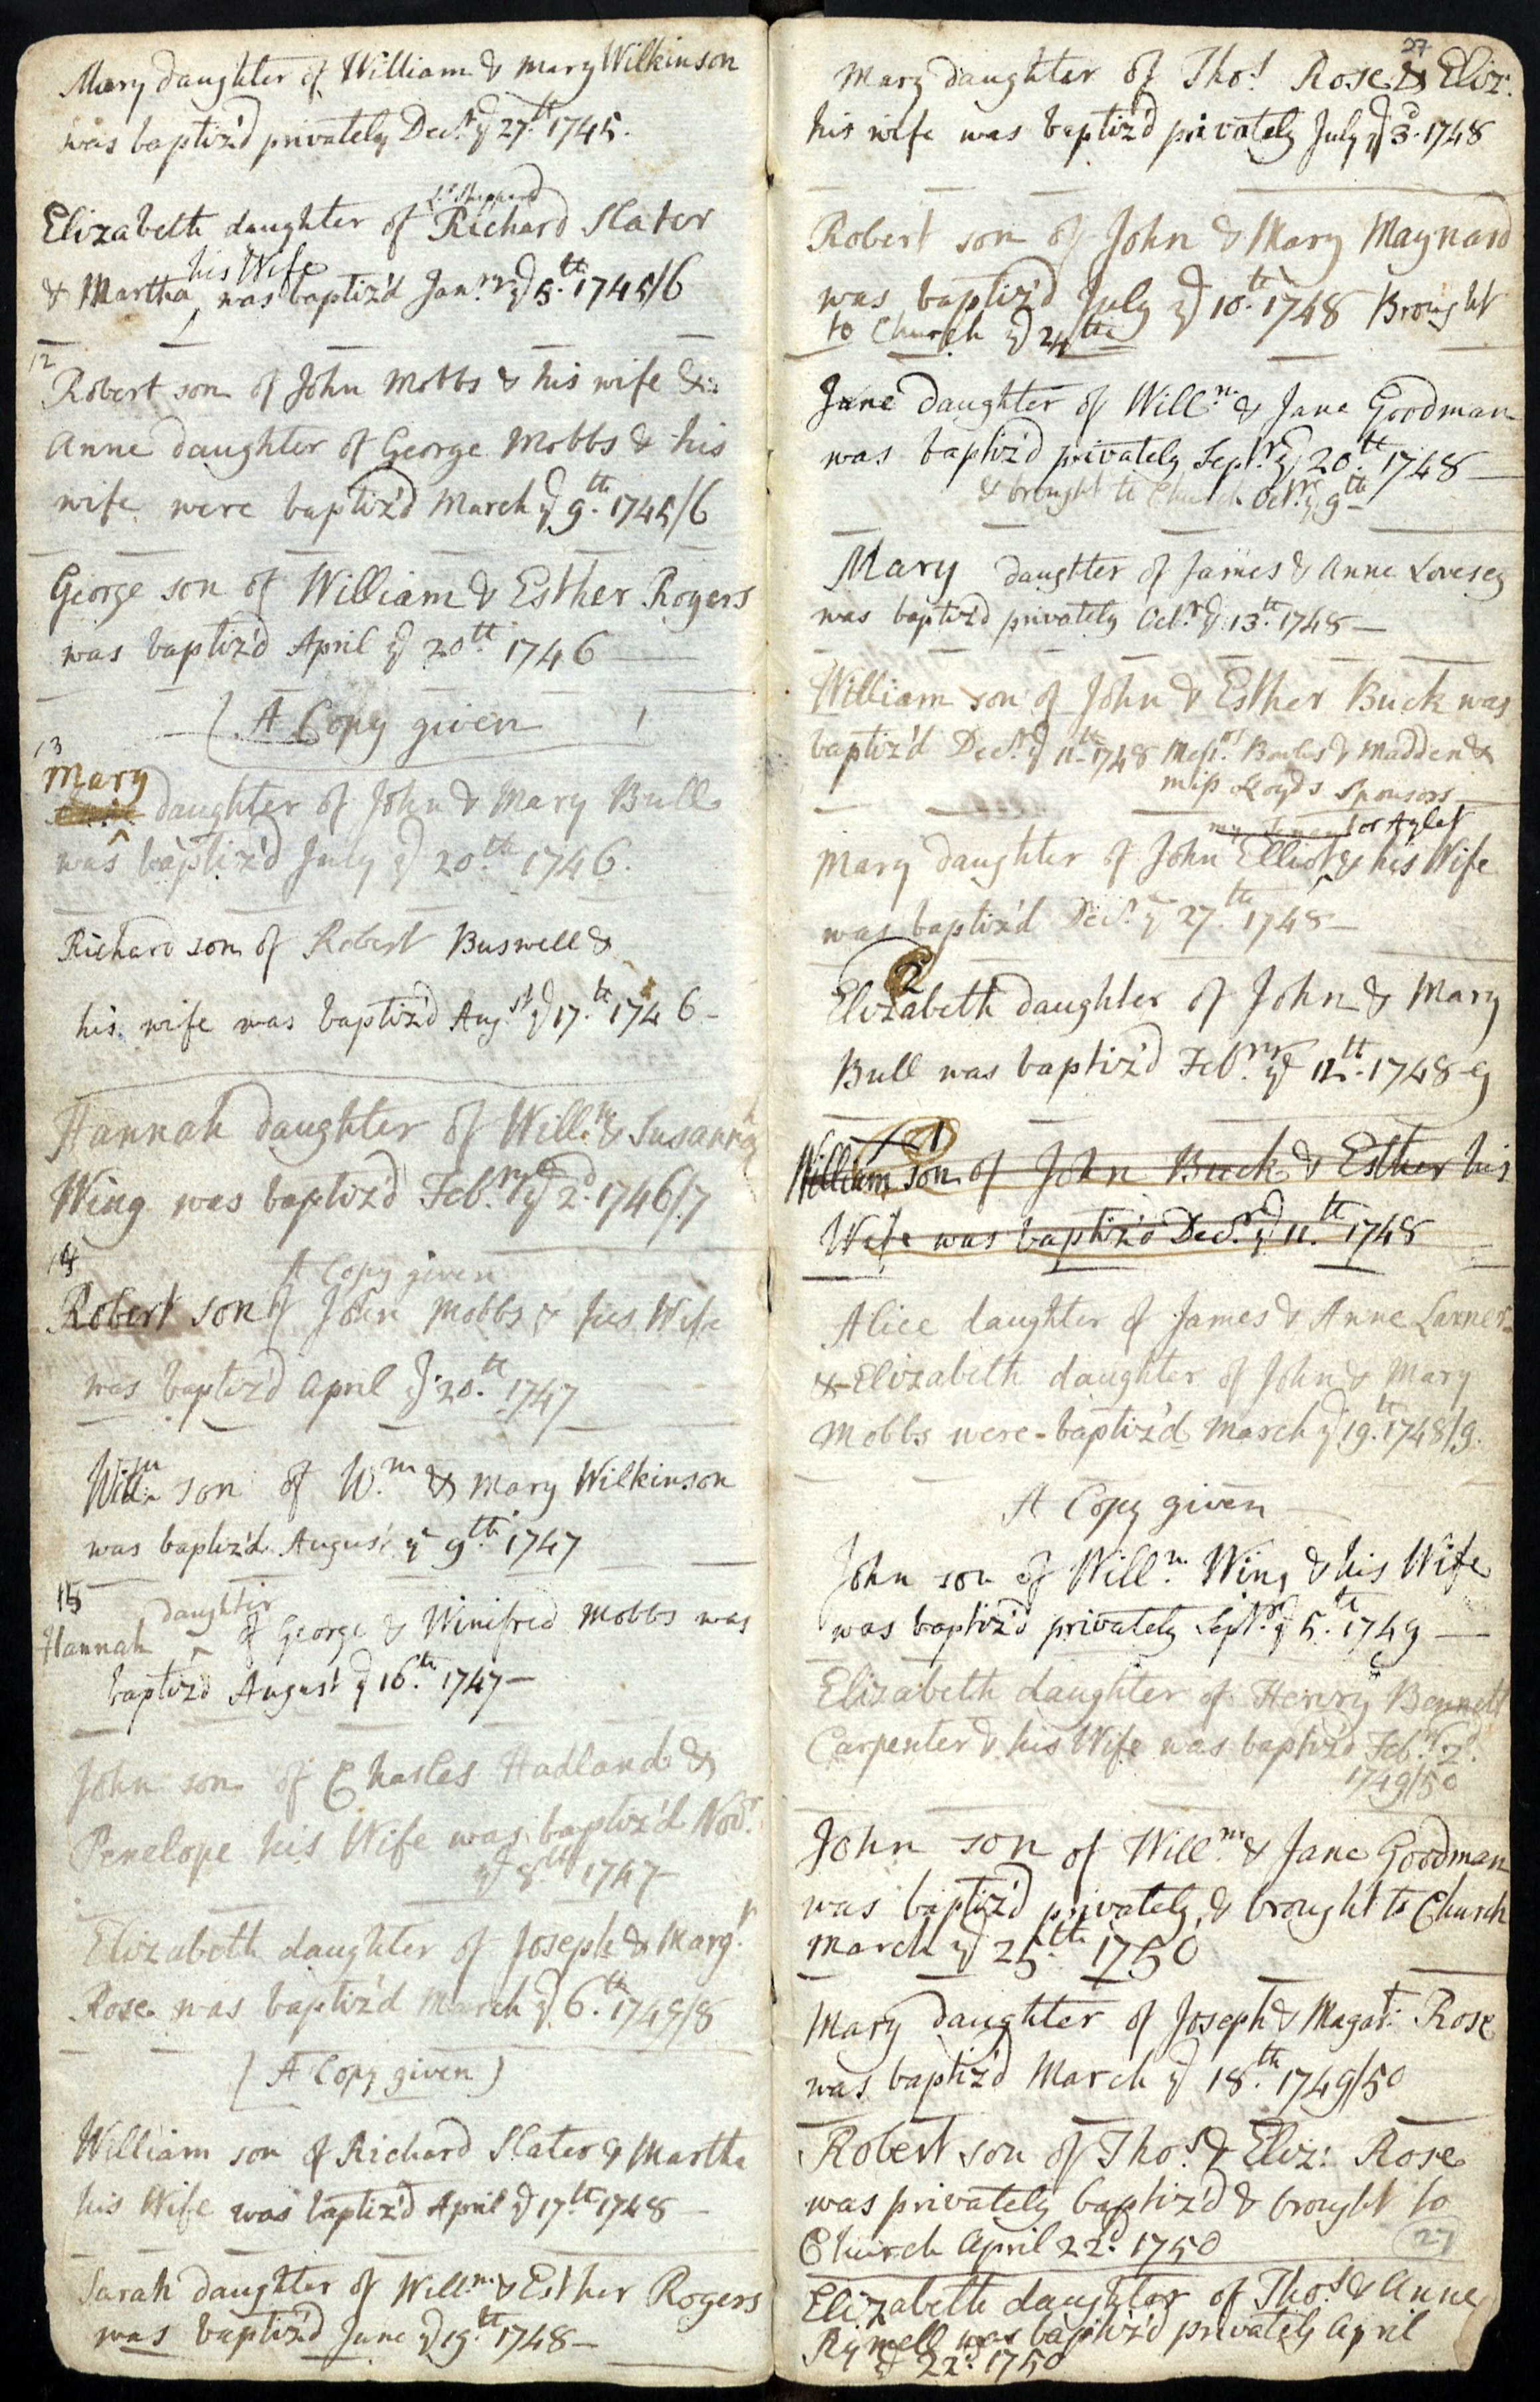 Mary daughter of William & Mary Wilkinson
was baptiz'd privately Decr. ye 27th. 1745.
Elizabeth daughter of Richard Slater
his Wife
& Martha ‸ was baptiz'd Janry. ye 5th. 1745/6
12
Robert son of John Mobbs & his wife &
Anne daughter of George Mobbs & his
wife were baptiz'd March ye 9th. 1745/6
George son of William & Esther Rogers
was baptiz'd April ye 20th 1746
( A Copy given
13
Mary
daughter of John & Mary Bull
was baptiz'd July ye 20th 1746.
Richard son of Robert Buswell &
his wife was baptiz'd Augst. ye 17th. 1746-
Hannah daughter of Willm. & Susanna
Wing was baptiz'd Febry. ye 2d. 1746/7
14
A Copy given
Robert son of John Mobbs & his Wife
was baptiz'd April ye 20th. 1747
Willm son of Wm. & Mary Wilkinson
was baptiz'd August ye 9th. 1747
15
daughter
Hannah ‸ of George & Winifred Mobbs was
baptiz'd August ye 16th. 1747-
John son of Charles Hadland &
Penelope his Wife was baptiz'd Novr.
ye 8th 1747-
Elizabeth daughter of Joseph & Margt.
Rose was baptiz'd March ye 6th. 1747/8
( A Copy given )
William son of Richard Slater & Martha
his Wife was baptiz'd April ye 17th 1748-
Sarah daughter of Willm. & Esther Rogers
was baptiz'd June ye 19th. 1748-
27
Mary daughter of Thos. Rose & Eliz:
his wife was baptiz'd privately July ye 3d. 1748
Robert son of John & Mary Maynard
was baptiz'd July ye 10th. 1748 Brought
to Church ye 24th
Jane daughter of Willm. & Jane Goodman
was baptiz'd privately Septr. ye 20th. 1748-
& brought to Church Octr. ye 9th-
Mary daughter of James & Anne Lovesey
was baptiz'd privately Octr. ye 13th. 1748-
William son of John & Esther Buck was
baptiz'd Decr. ye 11th- 1748 Messrs. & Madden &
miss Lloyds Sponsors
or Aylet
Mary daughter of John Elliot & his Wife
was baptiz'd Decr. ye 27th. 1748-
2
Elizabeth daughter of John & Mary
Bull was baptiz'd Febry. ye 12th. 1748-9
1
William son of John Buck & Esther his
Wife was baptiz'd Decr. ye 11th. 1748
Alice daughter of James & Anne Larner
& Elizabeth daughter of John & Mary
Mobbs were baptiz'd March ye 19th. 1748/9.
A Copy given
John son of Willm. Wing & his Wife
was baptiz'd privately Septr. ye 5th. 1749-
Elizabeth daughter of Henry Bennett
Carpenter & his Wife was baptiz'd Febry. 2d.
1749/50
John son of Willm. & Jane Goodman
was baptiz'd privately, & brought to Church
March ye 25th. 1750
Mary daughter of Joseph & Magat: Rose
was baptiz'd March ye 18th. 1749/50
Robert son of Thos. & Eliz: Rose
was privately baptiz'd & brought to
Church April 22d. 1750
27
Elizabeth daughter of Thos. & Anne
Rymell was baptiz'd privately April
ye 22d. 1750